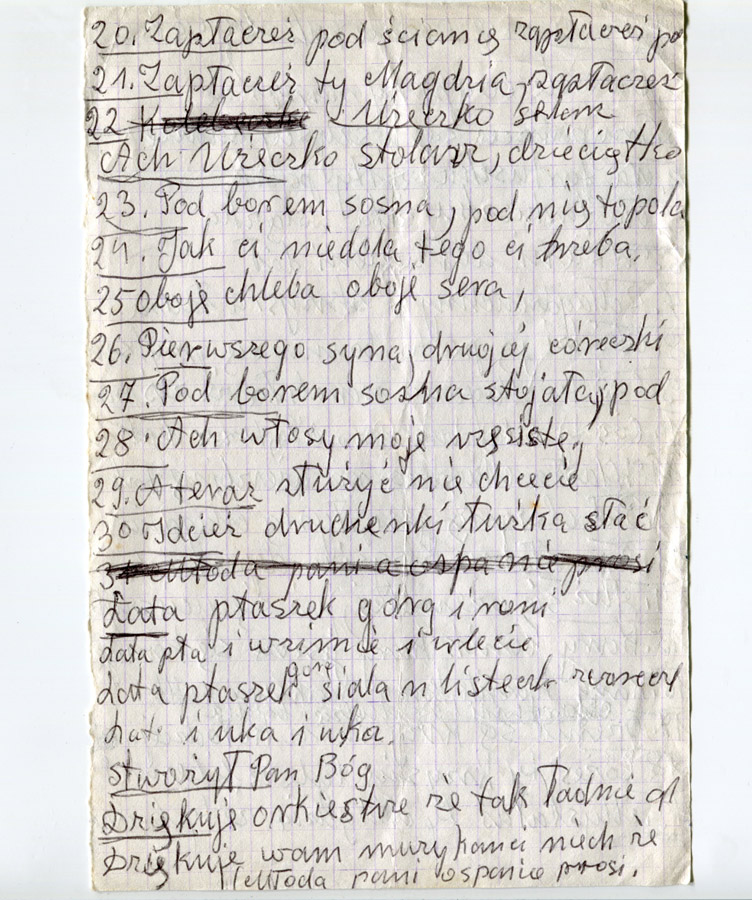 20. Zapłaczesz pod ścianą zapłaczesz po
21. Zapłaczesz ty Magdzia, zapłaczesz
22 Użeczko
Ach Użeczko stolarz, dzieciątko
23. Pod borem sosna, pod nią topola
24. Jak ci niedola tego ci trzeba,
25 oboje chleba oboje sera,
26. Pierwszego syna, drugiej córeczki
27. Pod borem sosna stojała, pod
28. Ach włosy moje
29. A teraz służyć nie chcecie
30 Idcież druchenki łużka słać
31 Młoda pani a ospanie prosi
Lata ptaszek górą i roni
Lata pta i wzimie i wlecie
Lata ptaszek górą siada n listeck
Lat. i uka i uka.
Stworzył Pan Bóg
Dziękuje orkiestrze że tak ładnie
Dziękuje wam muzykanci niech że
Młoda pani ospanie prosi.